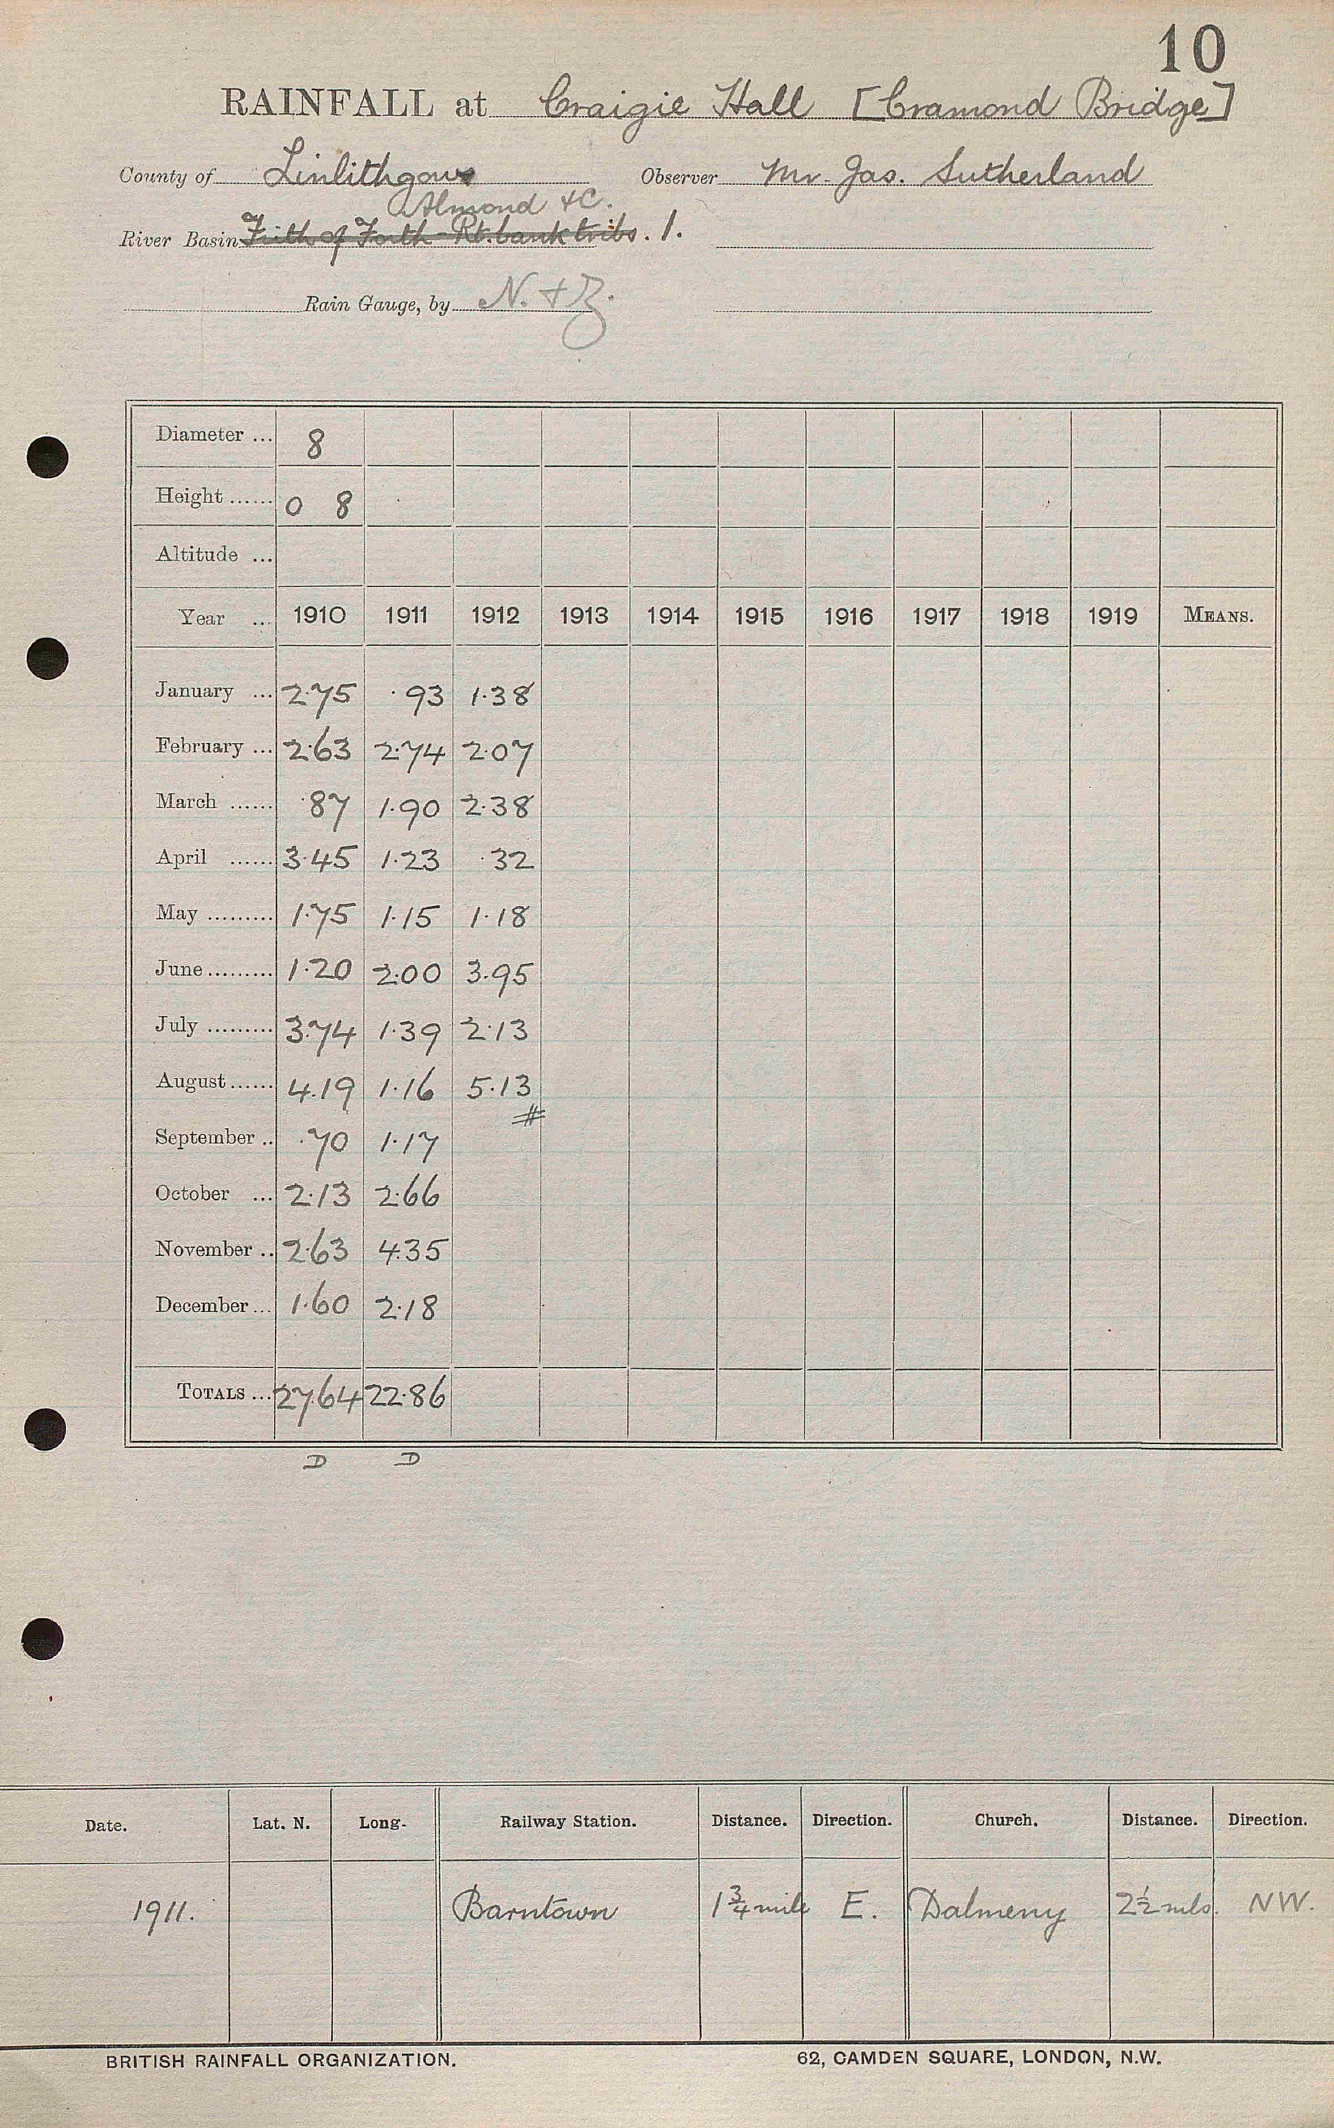 10
RAINFALL at Craigie Hall [Cramond Bridge]
County of Linlithgow Observer Mr. Jas. Sutherland
Almond &c.
River Basin Frith of Forth - Rt. bank tribs. 1.
Rain Gauge, by N. & Z.
Diameter ... 8
Height ...... 0 8
Altitude ...
Year ... 1910 1911 1912 1913 1914 1915 1916 1917 1918 1919 MEANS.
January ... 2.75 .93 1.38
February ... 2.63 2.74 2.07
March ...... .87 1.90 2.38
April ...... 3.45 1.23 .32
May ......... 1.75 1.15 1.18
June ......... 1.20 2.00 3.95
July ......... 3.74 1.39 2.13
August ...... 4.19 1.16 5.13
#
September .. .70 1.17
October ... 2.13 2.66
November .. 2.63 4.35
December ... 1.60 2.18
TOTALS ... 27.64 22.86
D D
Date. Lat. N. Long. Railway Station. Distance. Direction. Church. Distance. Direction.
1911. Barntown 1 3/4 mile E. Dalmeny 2 1/2 mls. NW.
BRITISH RAINFALL ORGANIZATION. 62, CAMDEN SQUARE, LONDON, N.W.